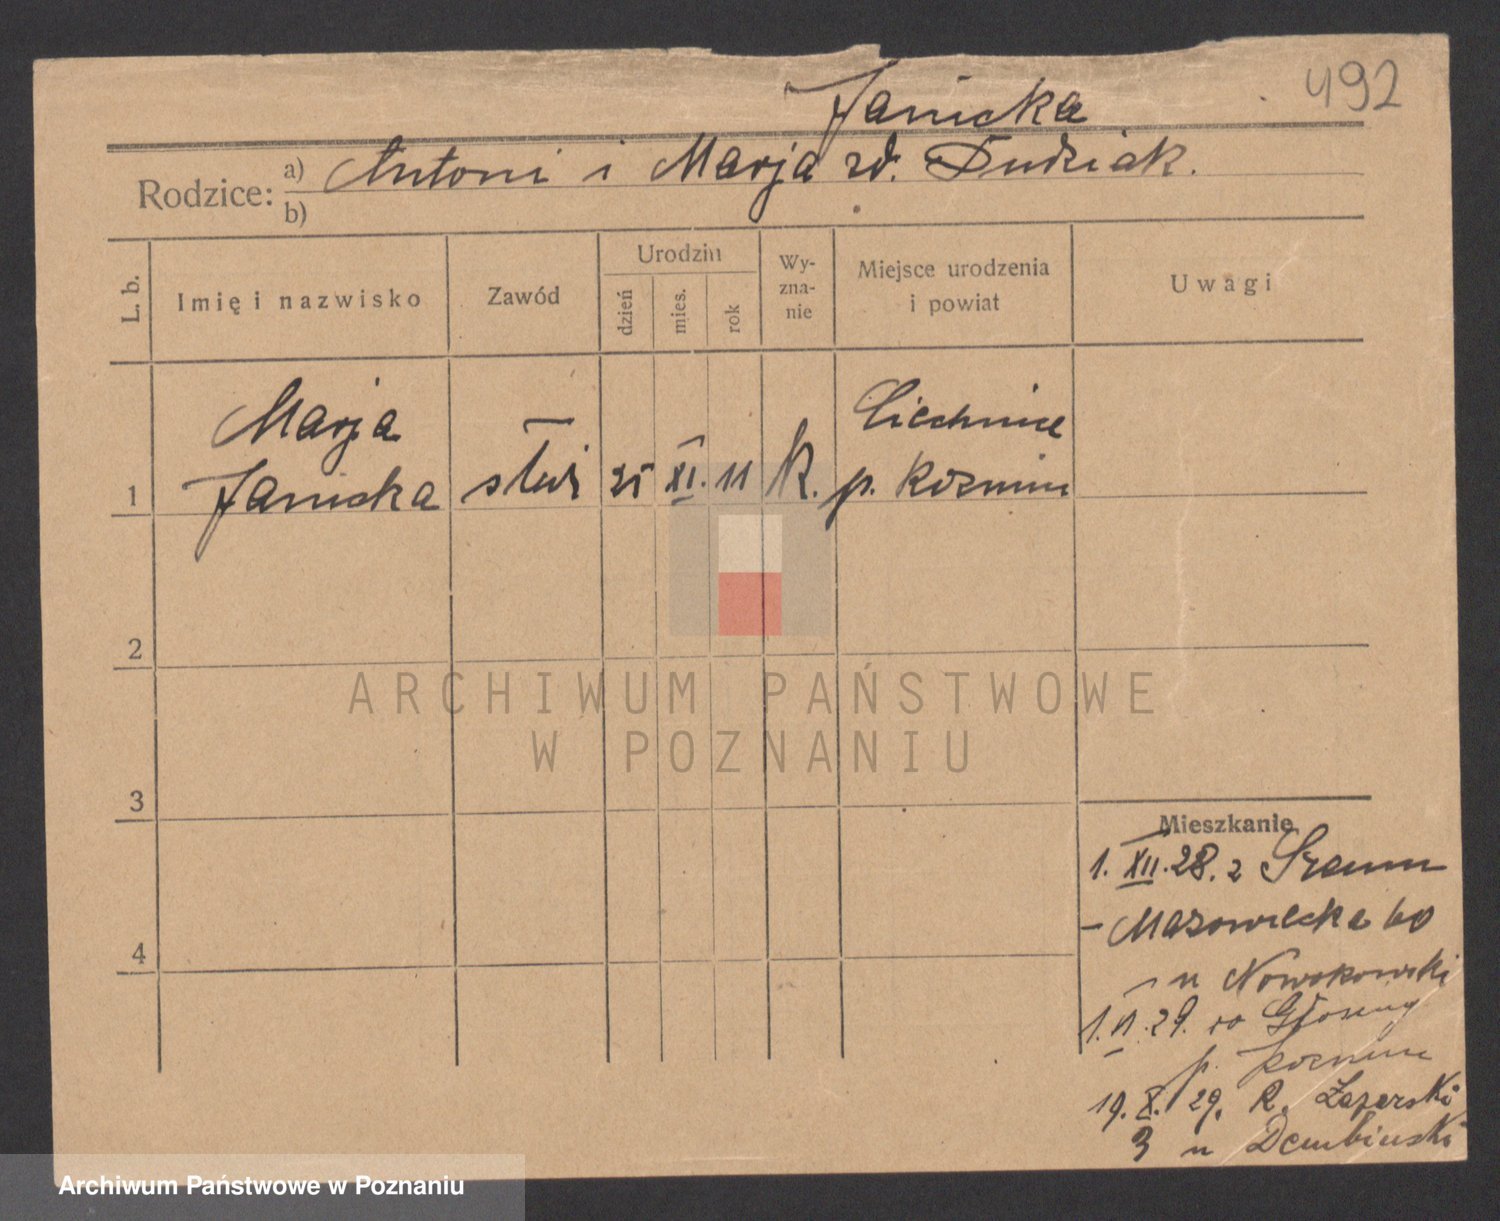 492
Janicka
Rodzice: a) Antoni i Marja zd. Dudziak.
b)
L. b. Imię i nazwisko Zawód Urodzin dzień mies. rok Wyznanie Miejsce urodzenia i powiat Uwagi
Marja Ciechnice
1 Janicka służ 25 XI. 11 k. p. Kozmin
2
3
4
Mieszkanie
1. XII. 28. z Śremu
- Mazowiecka 60
u Nowakowski
1. II. 29. do
p. Kozmin
19. X. 29. R. Łazarski
3 u Dembinski
ARCHIWUM PAŃSTWOWE
W POZNANIU
Archiwum Państwowe w Poznaniu